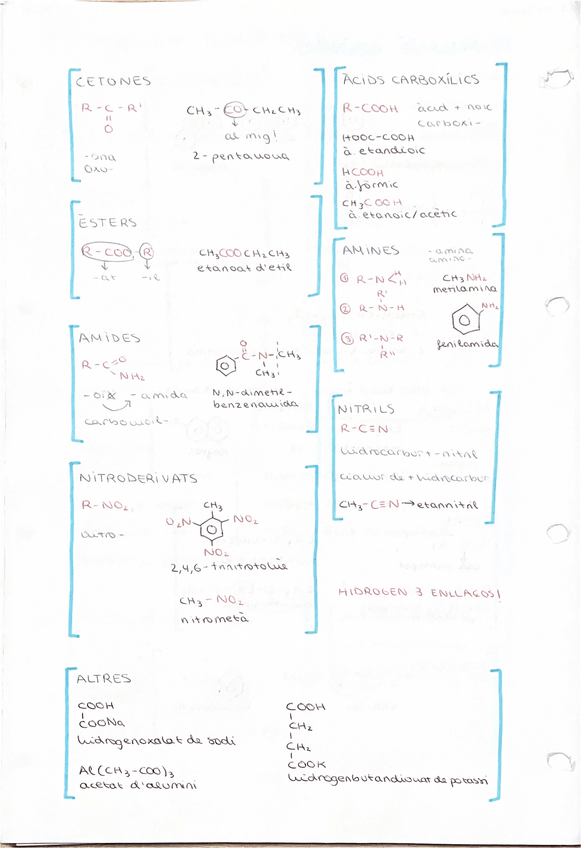 CETONES
R - C - R'
O
- ona
Oxo-
CH₃ - CO - CH₂CH₃
al mig!
2 - pentanona
ÈSTERS
R - COO - R'
- at
- il
CH₃COOCH₂CH₃
etanoat d'etil
AMIDES
R - C = O
NH₂
- oix - amida
carbamoil-
O
C - N - CH₃
CH₃
N,N-dimetil-
benzenamida
NITRODERIVATS
R - NO₂
nitro -
CH₃
O₂N
NO₂
NO₂
2,4,6 - trinitrotoluè
CH₃ - NO₂
nitrometà
ÀCIDS CARBOXÍLICS
R - COOH àcid + noic
carboxi -
HOOC-COOH
à. etandioic
HCOOH
à. fòrmic
CH₃COOH
à etanoic/acètic
AMINES
- amina
amino -
① R - N H
H
② R'
R - N - H
③ R' - N - R
R''
CH₃NH₂
metilamina
NH₂
fenilamida
NITRILS
R - C≡N
hidrocarbur + - nitril
cianur de + hidrocarbur
CH₃ - C≡N → etannitril
HIDROGEN 3 ENLLAÇOS!
ALTRES
COOH
COONa
hidrogenoxalat de sodi
Al(CH₃-COO)₃
acetat d'alumini
COOH
CH₂
CH₂
COOK
hidrogenbutandionat de potassi